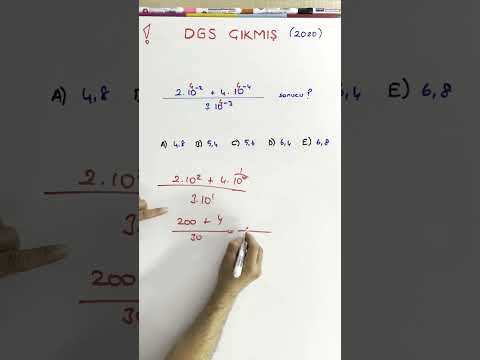 ! DGS ÇIKMIŞ (2020)
2.10⁴⁻² + 4.10⁴⁻⁴
3.10⁴⁻³
sonucu ?
A) 4,8 B) 5,4 C) 5,6 D) 6,4 E) 6,8
2.10² + 4.10⁰ 1
3.10¹
200 + 4
30
=
A) 4,8
,4 E) 6,8
200
30